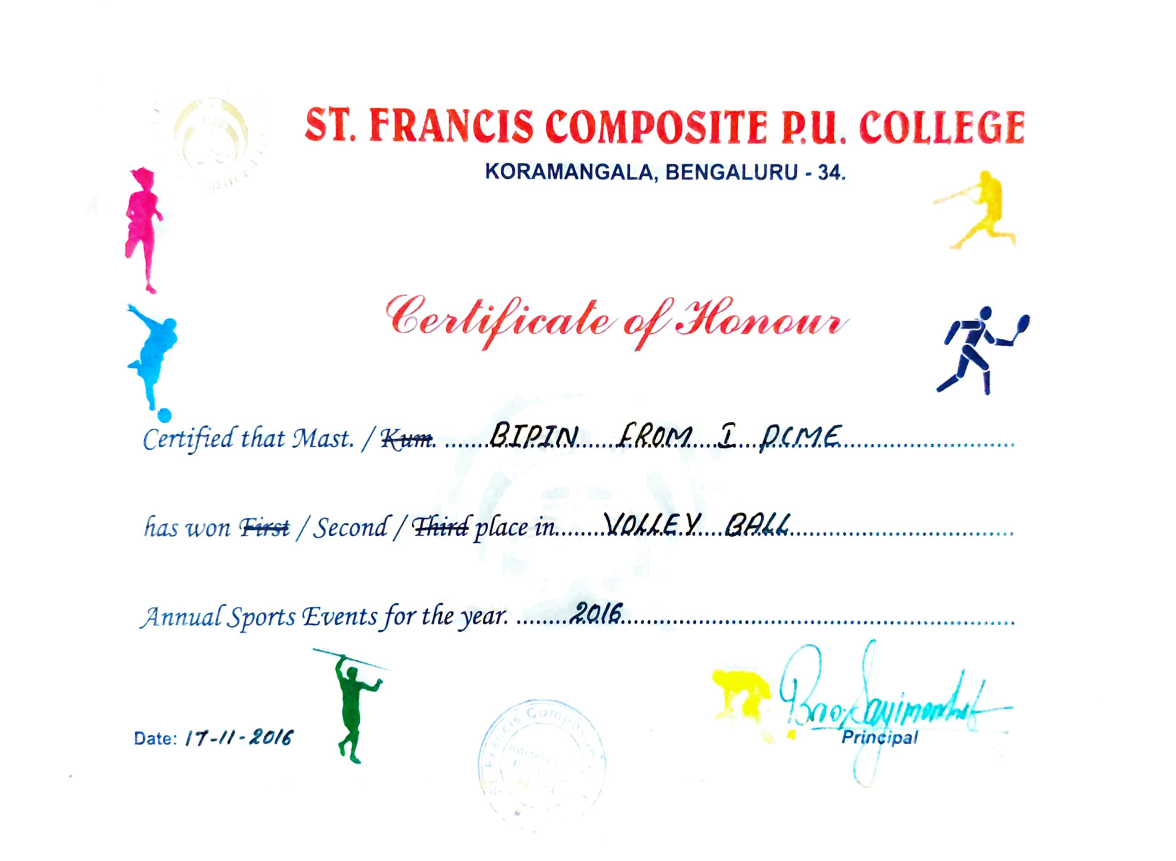 ST. FRANCIS COMPOSITE P.U. COLLEGE
KORAMANGALA, BENGALURU - 34.
Certificate of Honour
Certified that Mast. / Kum. BIPIN FROM I PCME
has won First / Second / Third place in VOLLEY BALL
Annual Sports Events for the year. 2016
Date: 17-11-2016
Principal
St. Francis Composite